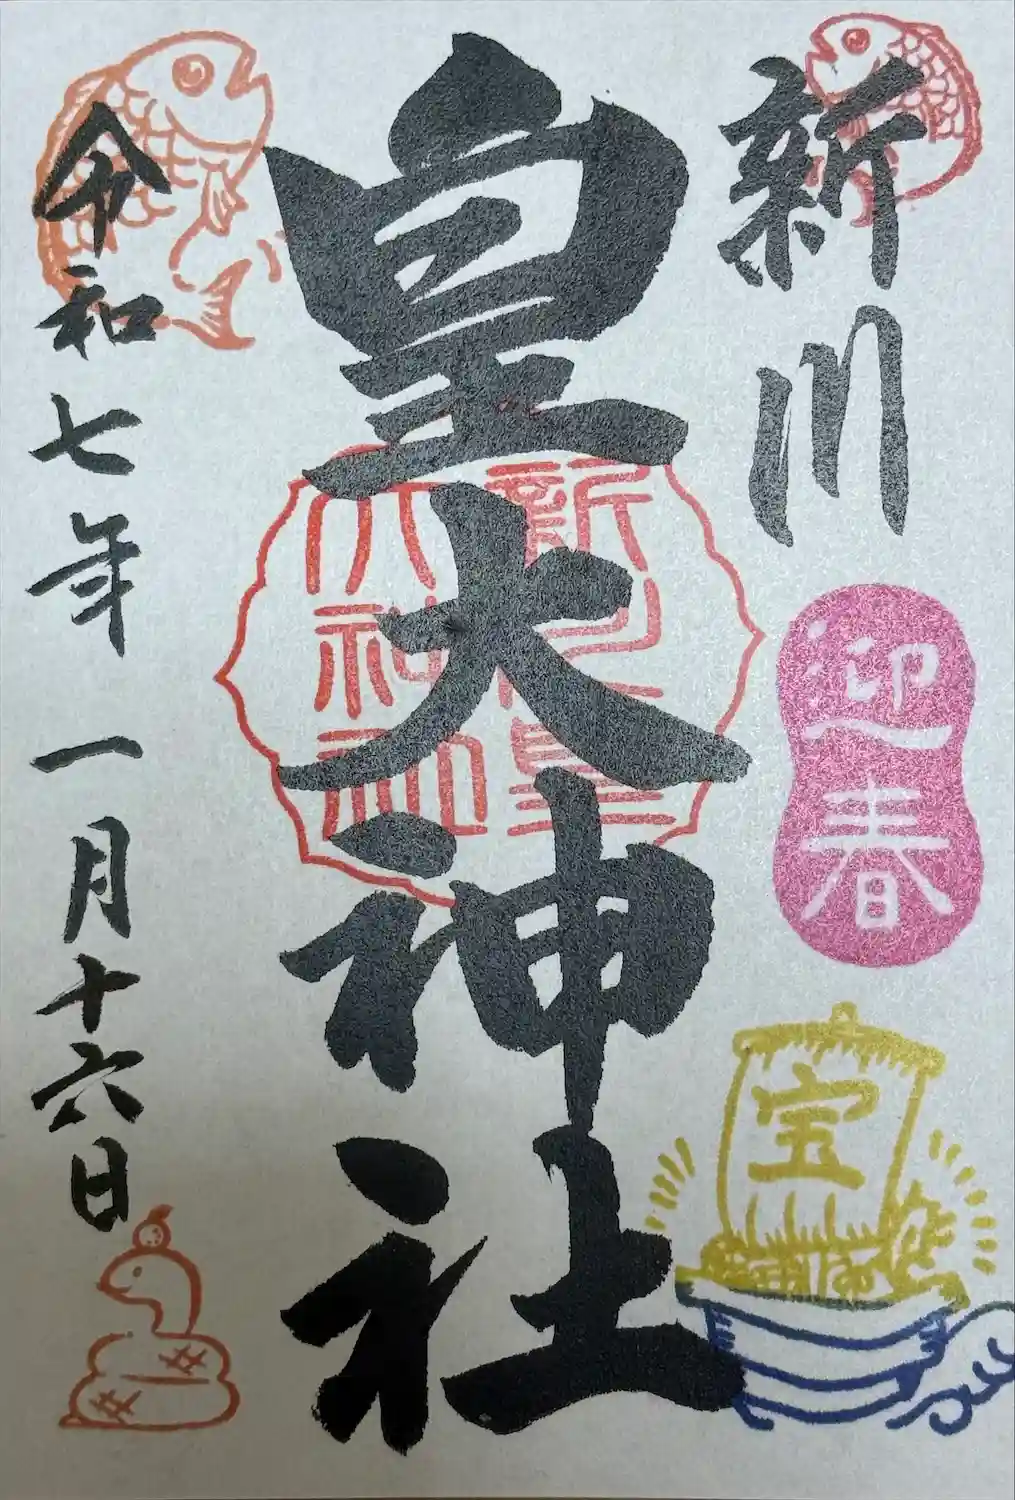 新川
皇大神社
迎春
宝
新川皇
大神社
令和七年一月十六日